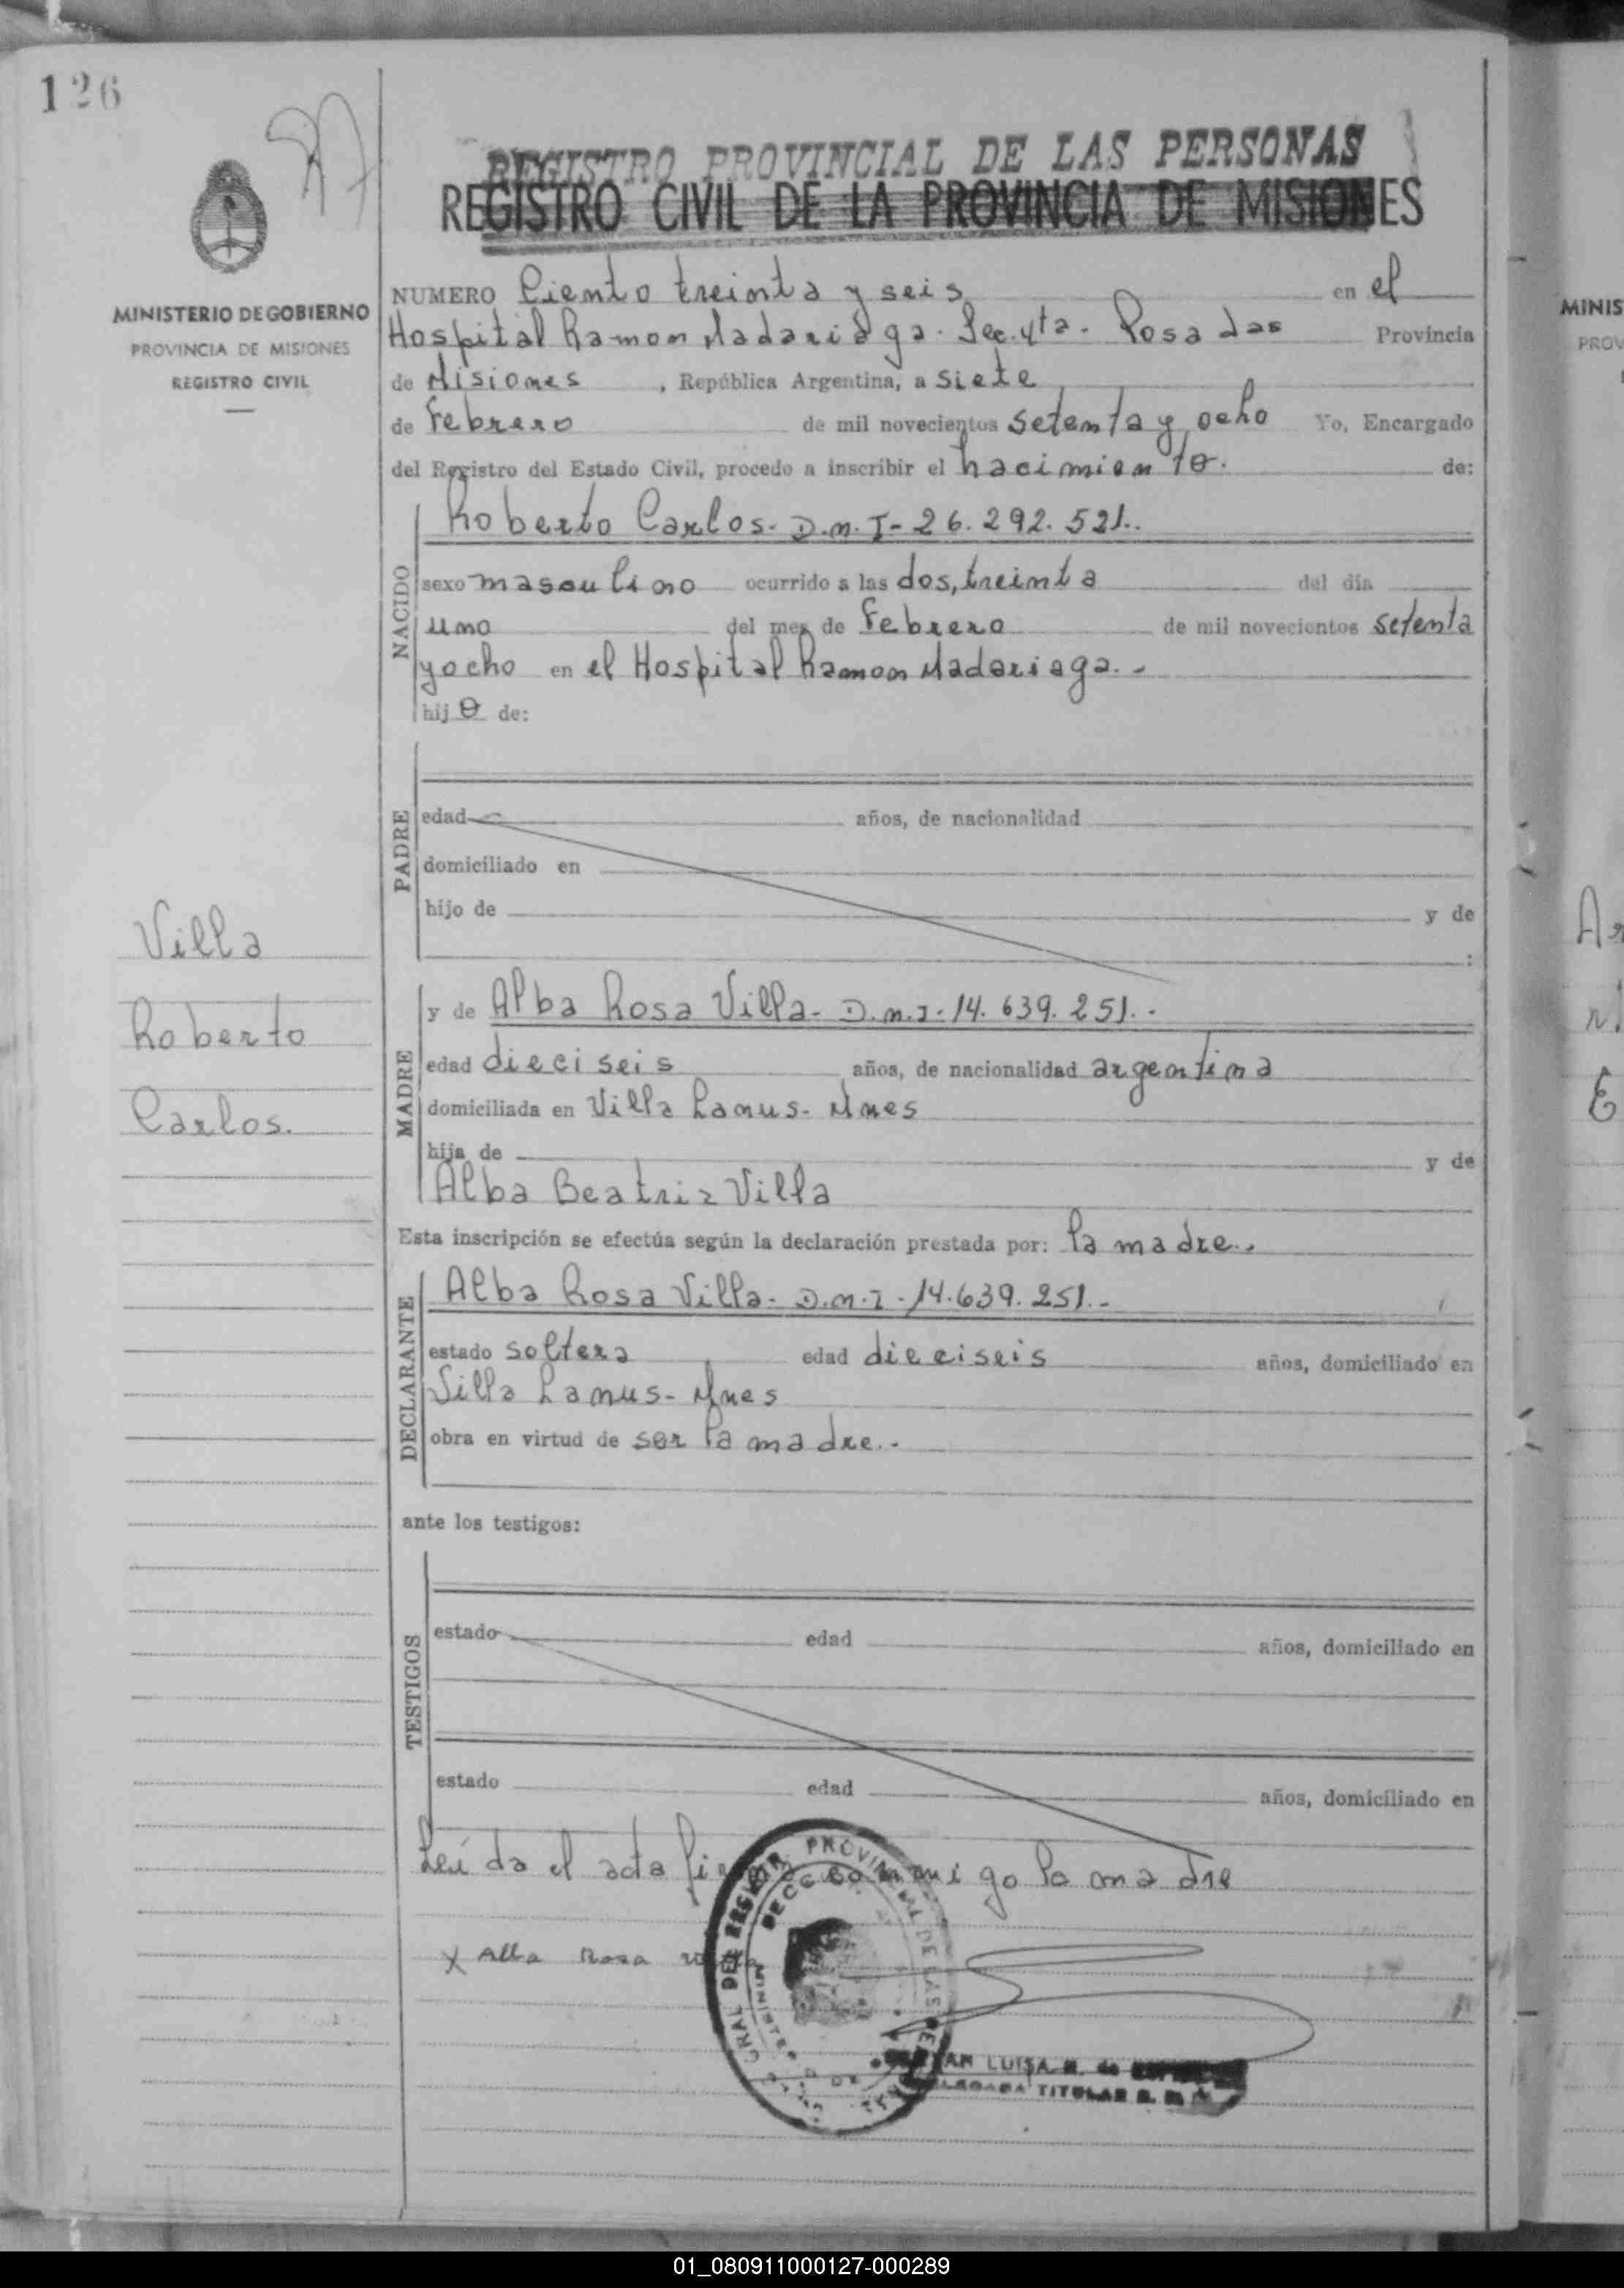 126
REGISTRO PROVINCIAL DE LAS PERSONAS
REGISTRO CIVIL DE LA PROVINCIA DE MISIONES
MINISTERIO DE GOBIERNO
PROVINCIA DE MISIONES
REGISTRO CIVIL
NUMERO Ciento treinta y seis en el
Hospital Ramon Madariaga. Sec. 4ta. Posadas Provincia
de Misiones, República Argentina, a siete
de Febrero de mil novecientos setenta y ocho Yo, Encargado
del Registro del Estado Civil, procedo a inscribir el nacimiento. de:
NACIDO
Roberto Carlos. D.N.I- 26.292.521..
sexo masculino ocurrido a las dos, treinta del día
uno del mes de Febrero de mil novecientos setenta
y ocho en el Hospital Ramon Madariaga..
hijo de:
PADRE
edad años, de nacionalidad
domiciliado en
hijo de y de
:
Villa
Roberto
Carlos.
MADRE
y de Alba Rosa Villa- D.N.I. 14.639.251..
edad dieciseis años, de nacionalidad argentina
domiciliada en Villa Lanus- Mnes
hija de y de
Alba Beatriz Villa
Esta inscripción se efectúa según la declaración prestada por: la madre..
DECLARANTE
Alba Rosa Villa- D.N.I- 14.639.251.-
estado soltera edad dieciseis años, domiciliado en
Villa Lanus- Mnes
obra en virtud de ser la madre..
ante los testigos:
TESTIGOS
estado edad años, domiciliado en
estado edad años, domiciliado en
Leída el acta firma conmigo la madre
x Alba Rosa
LUISA
TITULAR
MINIS
PROV
01_080911000127-000289